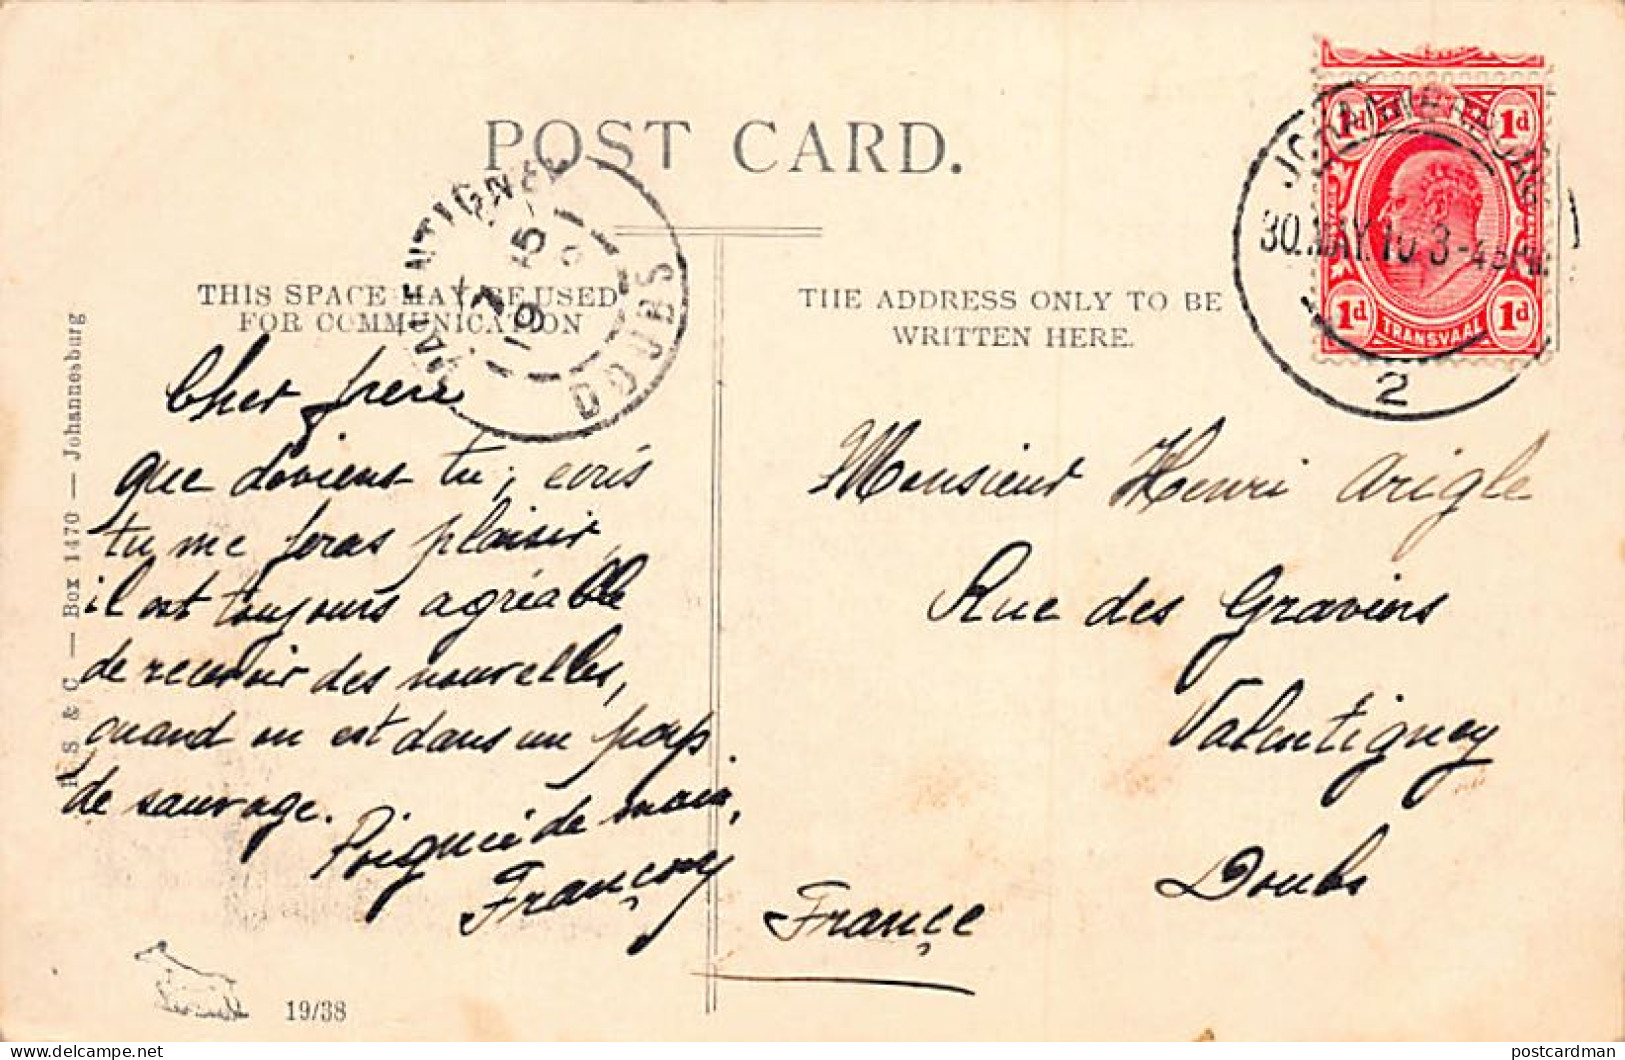 POST CARD.
THIS SPACE MAY BE USED
FOR COMMUNICATION
THE ADDRESS ONLY TO BE
WRITTEN HERE.
JOHANNESBURG
30.MAY.10 3-45PM
2
1d 1d
1d TRANSVAAL 1d
VALENTIGNEY
DOUBS
Cher frere
que deviens tu, ecris
tu me feras plaisir,
il est toujours agréable
de recevoir des nouvelles,
quand on est dans un pays
de sauvage.
Poignée de main,
Françoy
Monsieur Henri Arigle
Rue des Graviers
Valentigney
Doubs
France
S & C — Box 1470 — Johannesburg
19/38
delcampe.net
postcardman